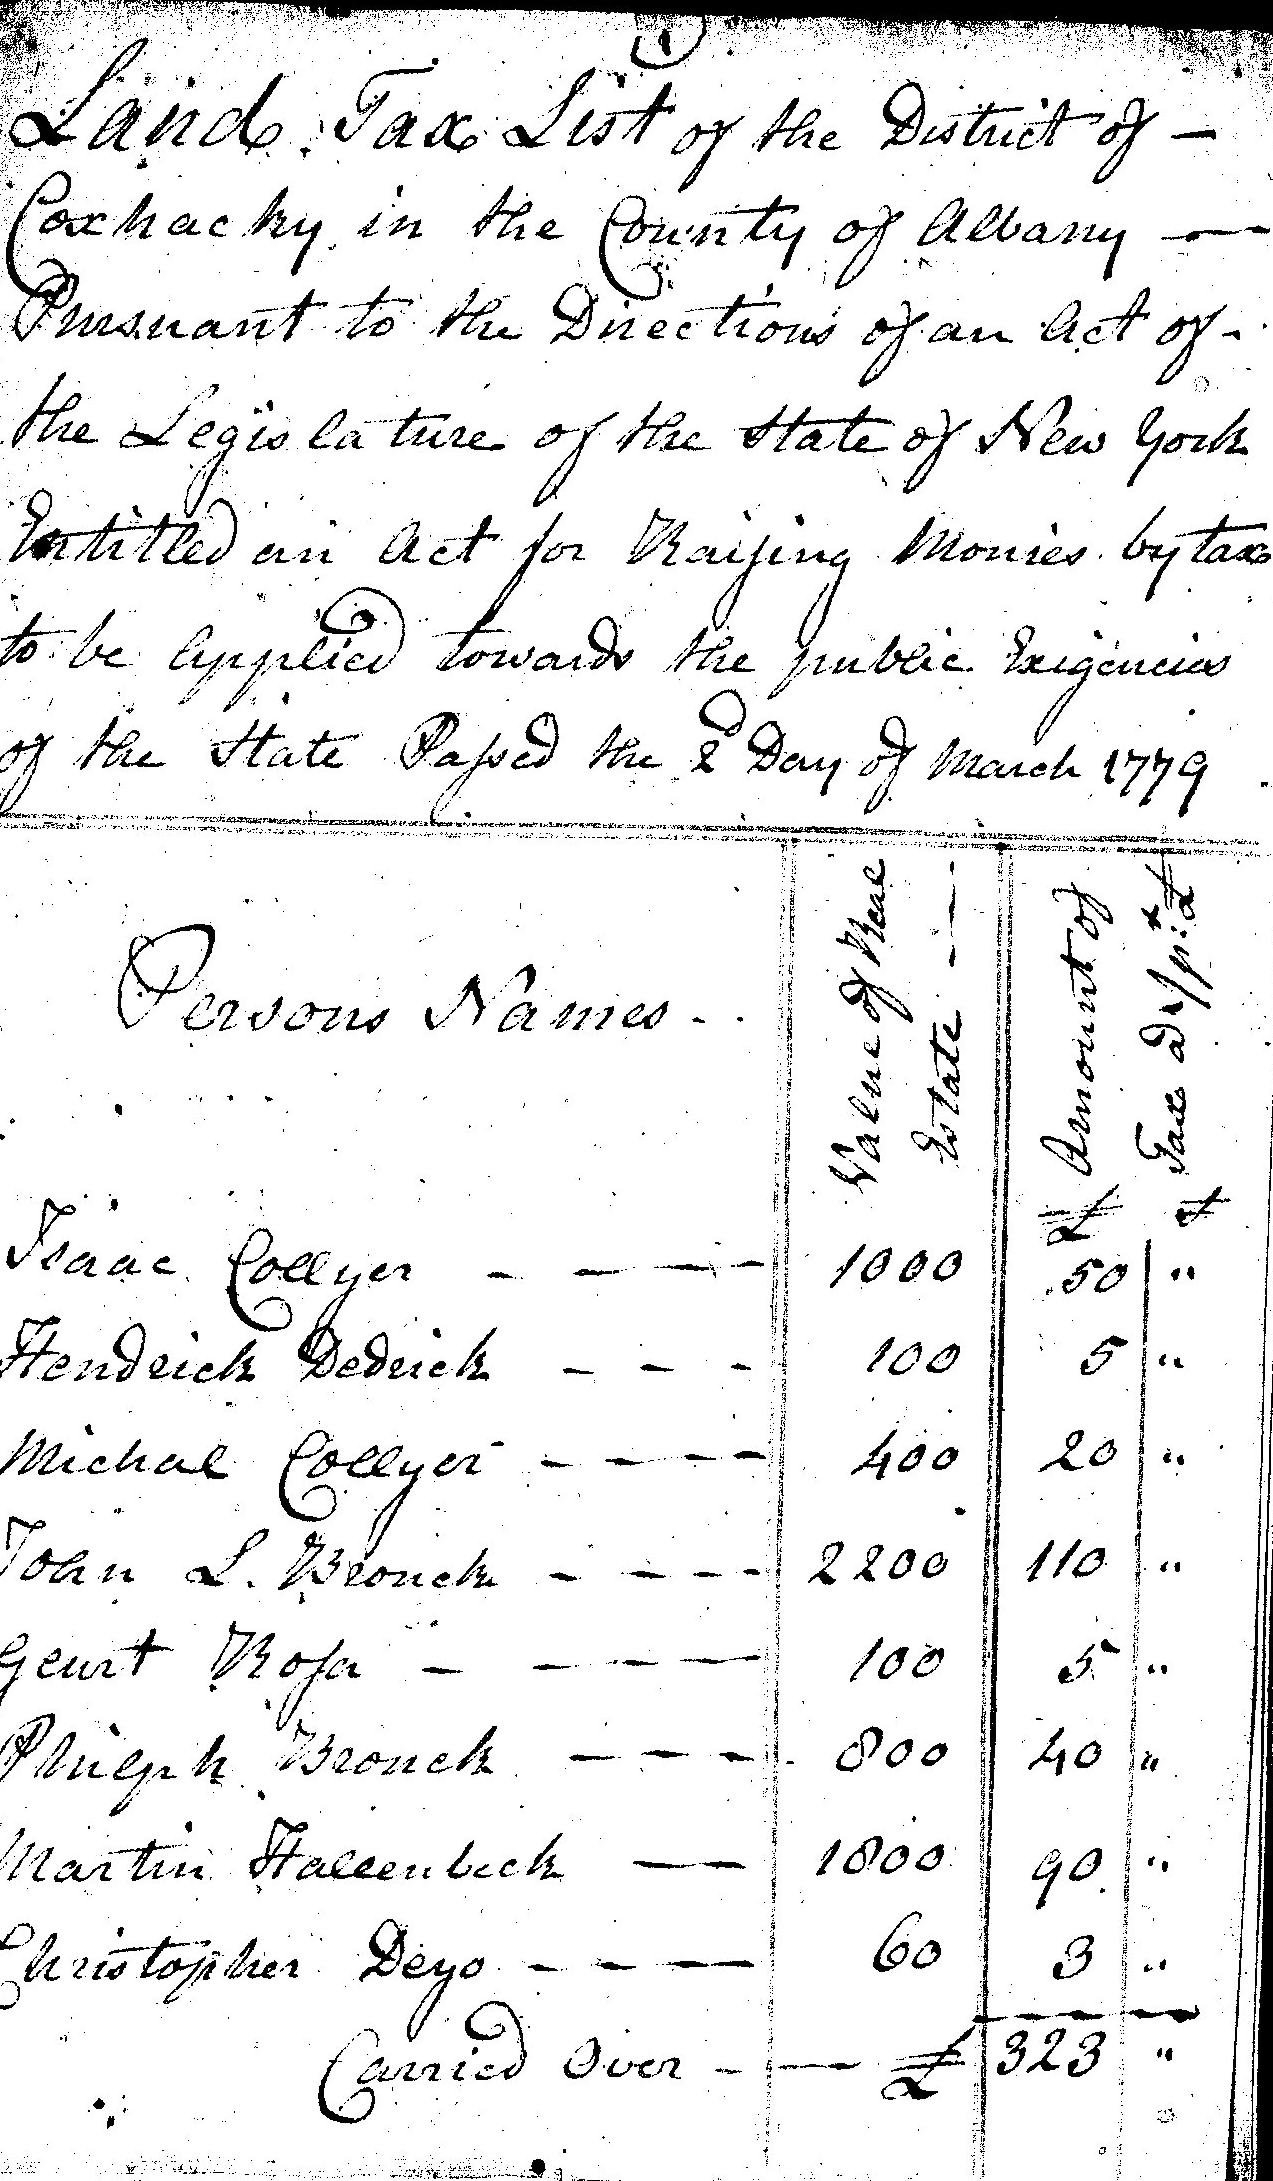 1
Land Tax List of the District of —
Coxhacky in the County of Albany —
Pursuant to the Directions of an Act of -
the Legislature of the State of New York
Entitled an Act for Raising Monies by tax
to be Applied towards the public Exigencies
of the State Passed the 2d Day of March 1779
Persons Names - Value of Real Estate — Amount of Tax a 1/ pr £
£ s
Isaac Collyer - - - - 1000 50 "
Hendrick Dedrick - - - 100 5 "
Michal Collyer - - - - 400 20 "
John L. Bronck - - - - 2200 110 "
Geurt Rosa - - - - 100 5 "
Philiph Bronck - - - 800 40 "
Martin Hallenbeck — - 1800 90 "
Christopher Deyo - - - 60 3 "
Carried Over - — £ 323 "